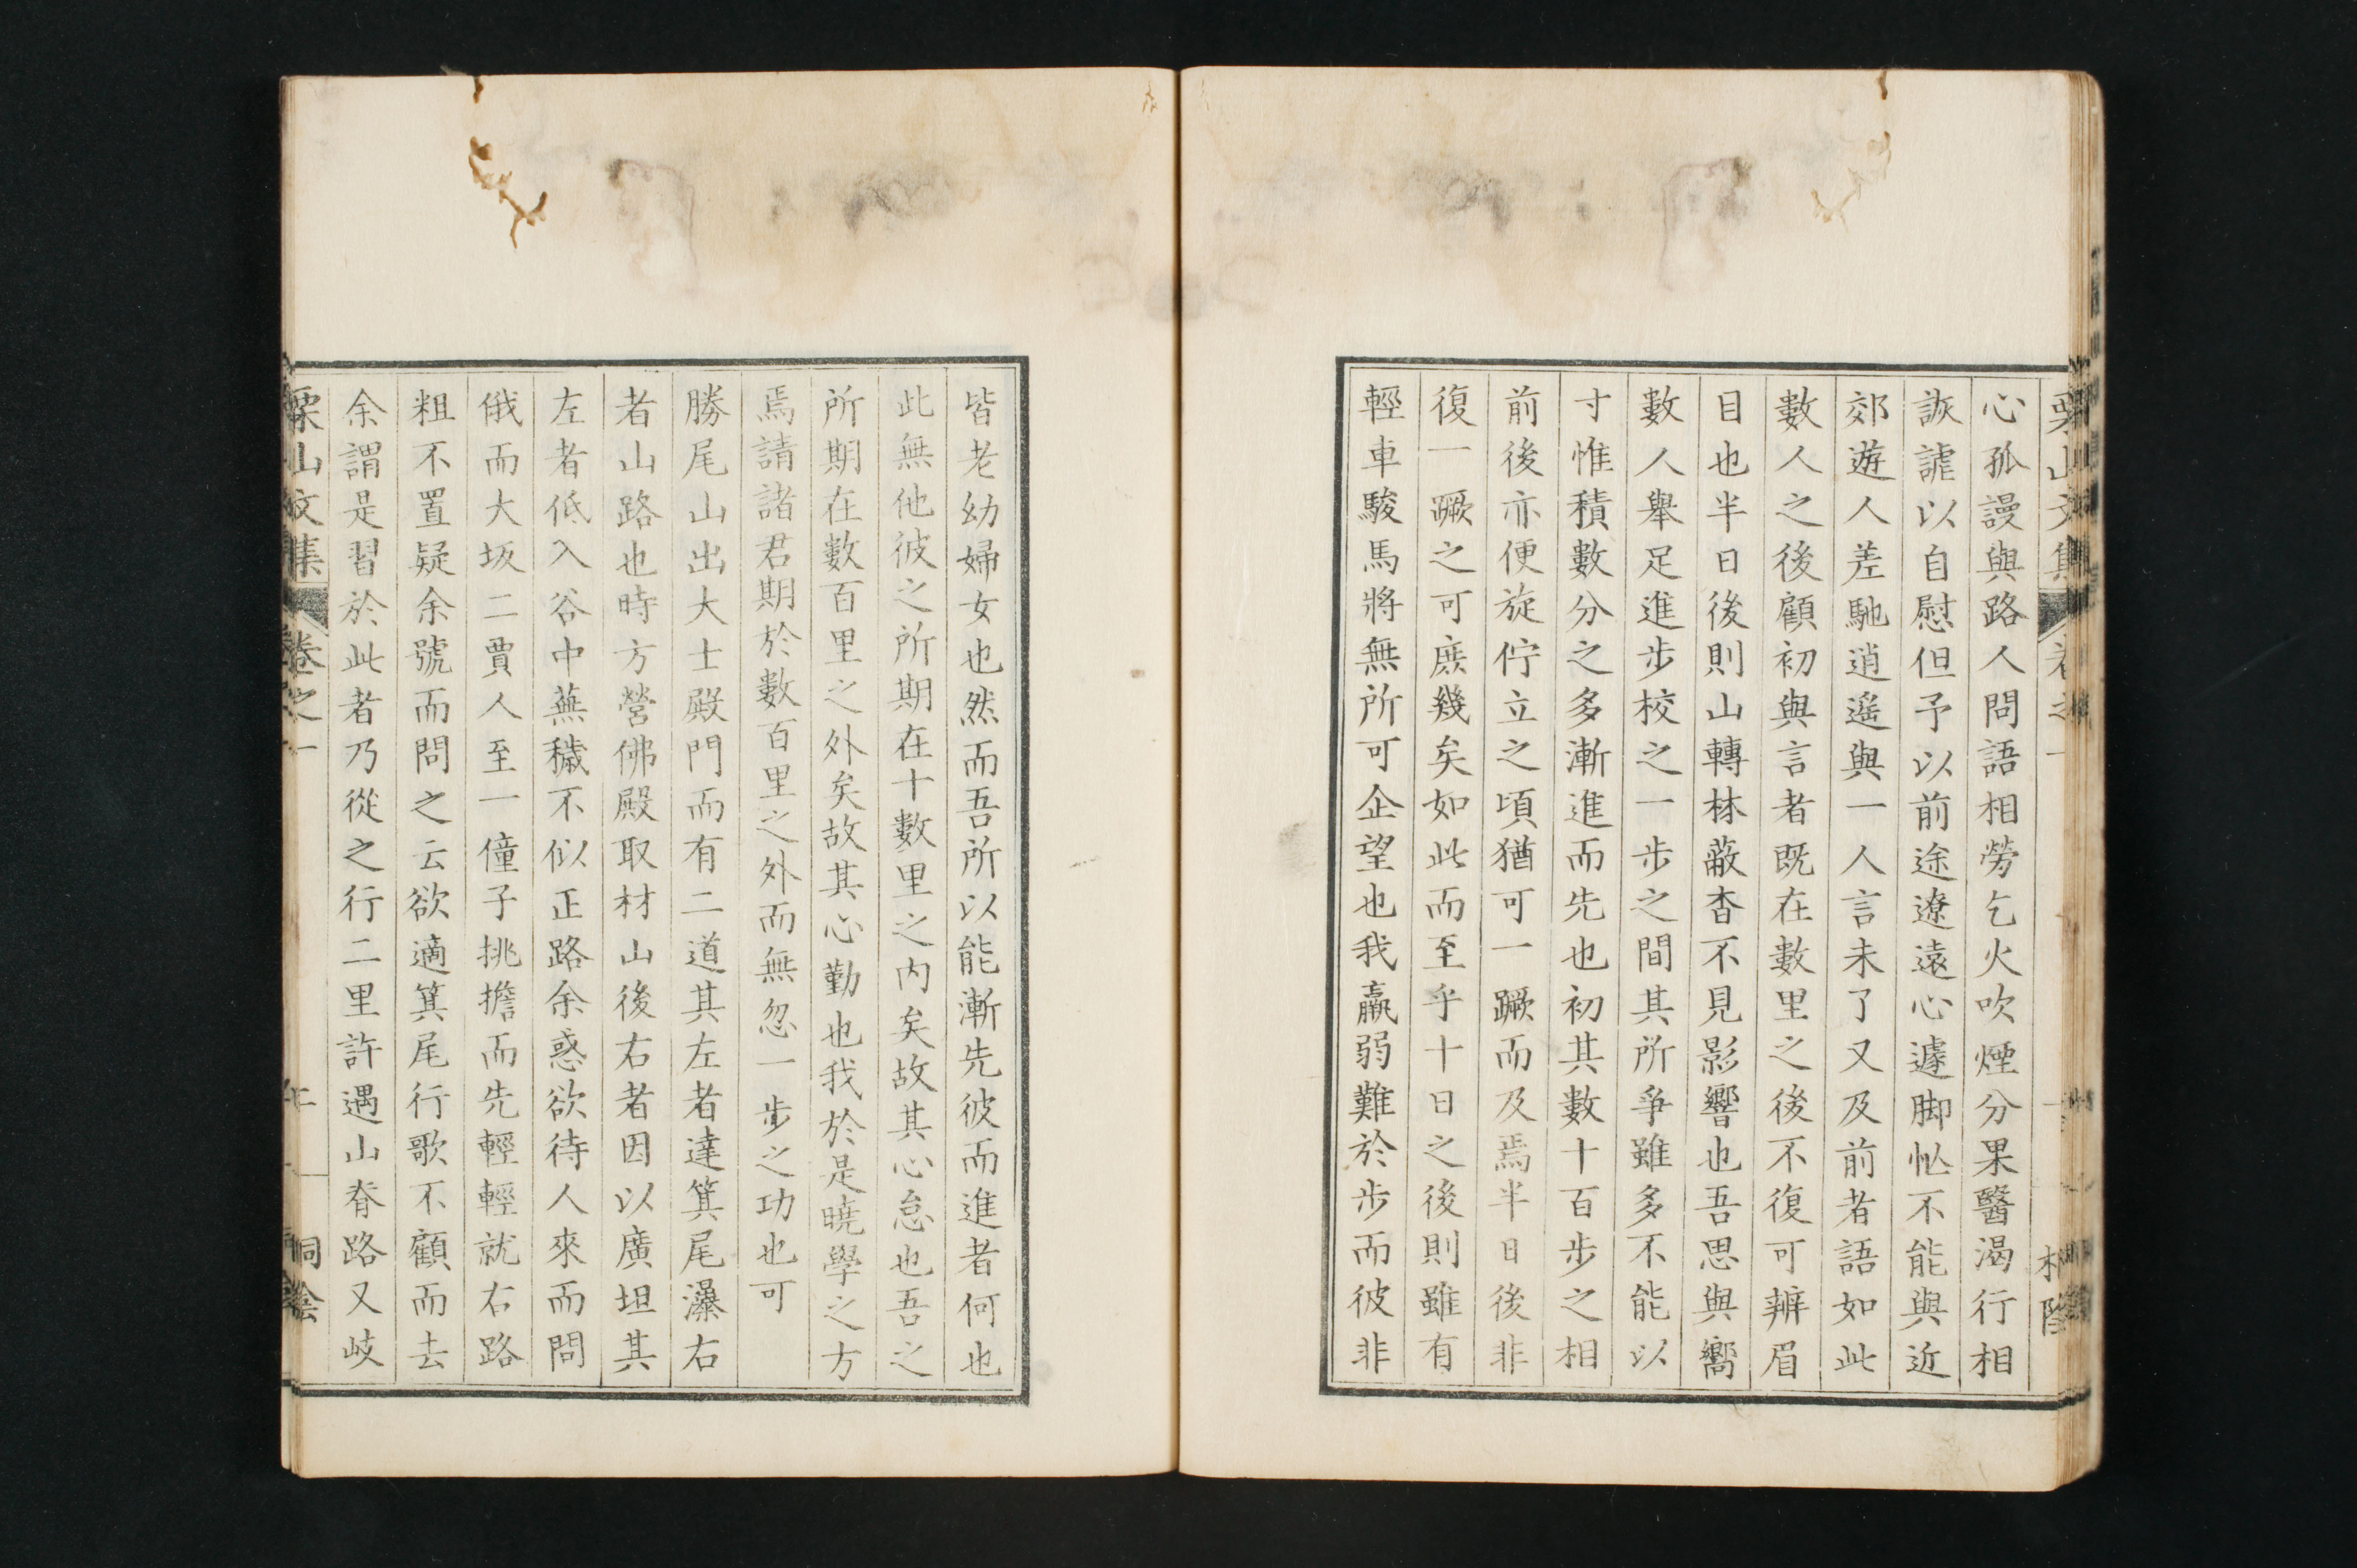 心孤謾與路人問語相勞乞火吹煙分果醫渴行相
詼謔以自慰但予以前途遼遠心遽脚忙不能與近
郊遊人差馳逍遙與一人言未了又及前者語如此
數人之後顧初與言者既在數里之後不復可辨眉
目也半日後則山轉林蔽杳不見影響也吾思與嚮
數人舉足進步校之一步之間其所爭雖多不能以
寸惟積數分之多漸進而先也初其數十百步之相
前後亦便旋佇立之頃猶可一蹶而及焉半日後非
復一蹶之可庶幾矣如此而至乎十日之後則雖有
輕車駿馬將無所可企望也我羸弱難於步而彼非
皆老幼婦女也然而吾所以能漸先彼而進者何也
此無他彼之所期在十數里之内矣故其心怠也吾之
所期在數百里之外矣故其心勤也我於是曉學之方
焉請諸君期於數百里之外而無忽一步之功也可
勝尾山出大士殿門而有二道其左者達箕尾瀑右
者山路也時方營佛殿取材山後右者因以廣坦其
左者低入谷中蕪穢不似正路余惑欲待人來而問
俄而大坂二賈人至一僮子挑擔而先輕輕就右路
粗不置疑余號而問之云欲適箕尾行歌不顧而去
余謂是習於此者乃從之行二里許遇山脊路又岐
栗山文集 卷之一